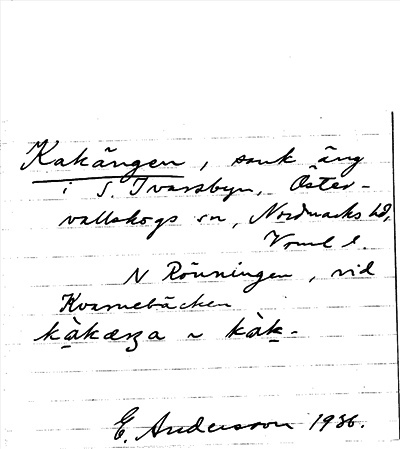 Kakängen, sank äng
i S. Ivarsbyn, Öster-
vallskogs sn, Nordmarks hd,
Vrml l.
N Rönningen, vid
Kvarnebäcken
E. Andersson 1936.